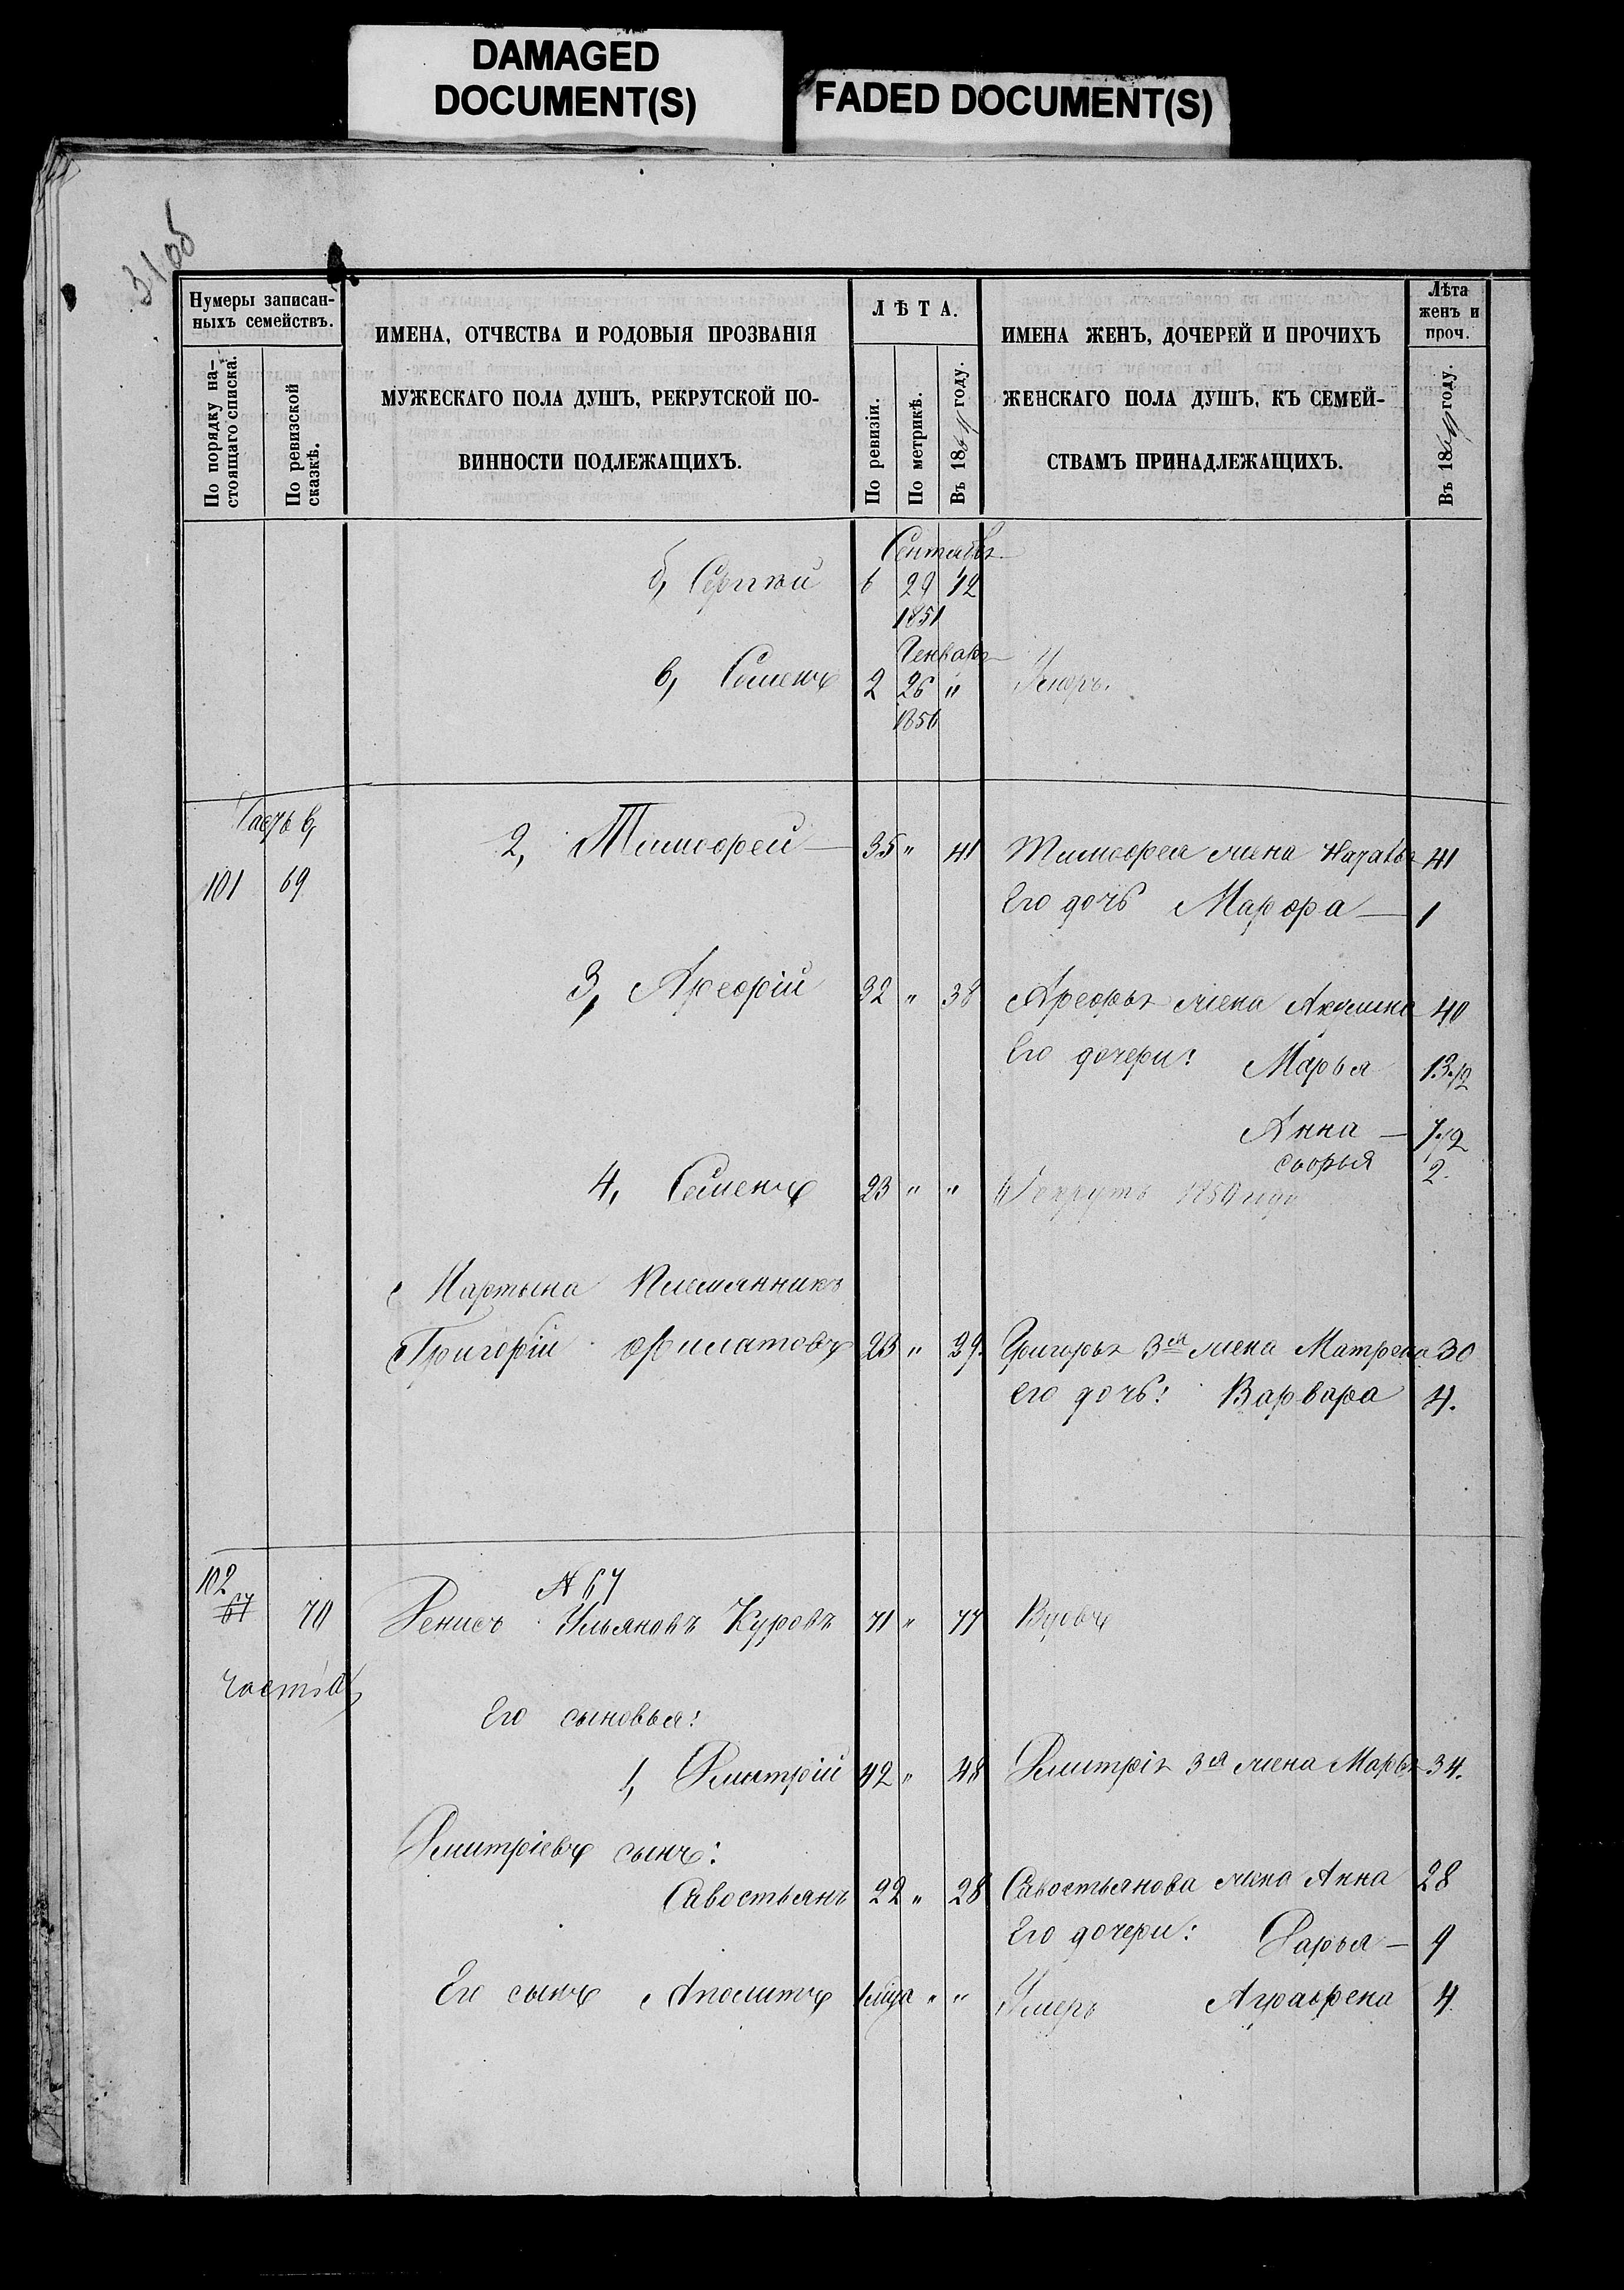 DAMAGED
DOCUMENT(S)
FADED DOCUMENT(S)
31об
Нумеры записан-
ныхъ семействъ.
По порядку на-
стоящаго списка.
По ревизской
сказкѣ.
ИМЕНА, ОТЧЕСТВА И РОДОВЫЯ ПРОЗВАНІЯ
МУЖЕСКАГО ПОЛА ДУШЪ, РЕКРУТСКОЙ ПО-
ВИННОСТИ ПОДЛЕЖАЩИХЪ.
ЛѢТА.
По ревизіи.
По метрикѣ.
Въ 1864 году.
ИМЕНА ЖЕНЪ, ДОЧЕРЕЙ И ПРОЧИХЪ
ЖЕНСКАГО ПОЛА ДУШЪ, КЪ СЕМЕЙ-
СТВАМЪ ПРИНАДЛЕЖАЩИХЪ.
Лѣта
женъ и
проч.
Въ 1864 году.
Сентября
б, Сергѣй 6 29 12
1851
Генваря
в, Семенъ 2 26 " Умеръ.
1856
Часть в,
2, Тимофей — 35 " 41 Тимофея жена Наталья 41
101 69
Его дочь Марфа — 1
3, Арефій 32 " 38 Арефья жена Акулина 40
Его дочери: Марья 13 1/2
Анна — 7 1/2
Софья 2.
4, Семенъ 23 " " Рекрутъ 1859 года
Мартына Племянникъ
Григорій Филатовъ 23 " 29. Григорья 3я жена Матрена 30
его дочь: Варвара 4.
102 N 67
67 70 Денисъ Ульяновъ Куровъ 71 " 77 Вдовъ
часть а,
Его сыновья:
1, Дмитрій 42 " 48 Дмитрія 3я жена Марья 34.
Дмитріевъ сынъ:
Савостьянъ 22 " 28 Савостьянова жена Анна 28
Его дочери: Дарья — 9
Его сынъ Аполитъ " " Умеръ Аграфена 4